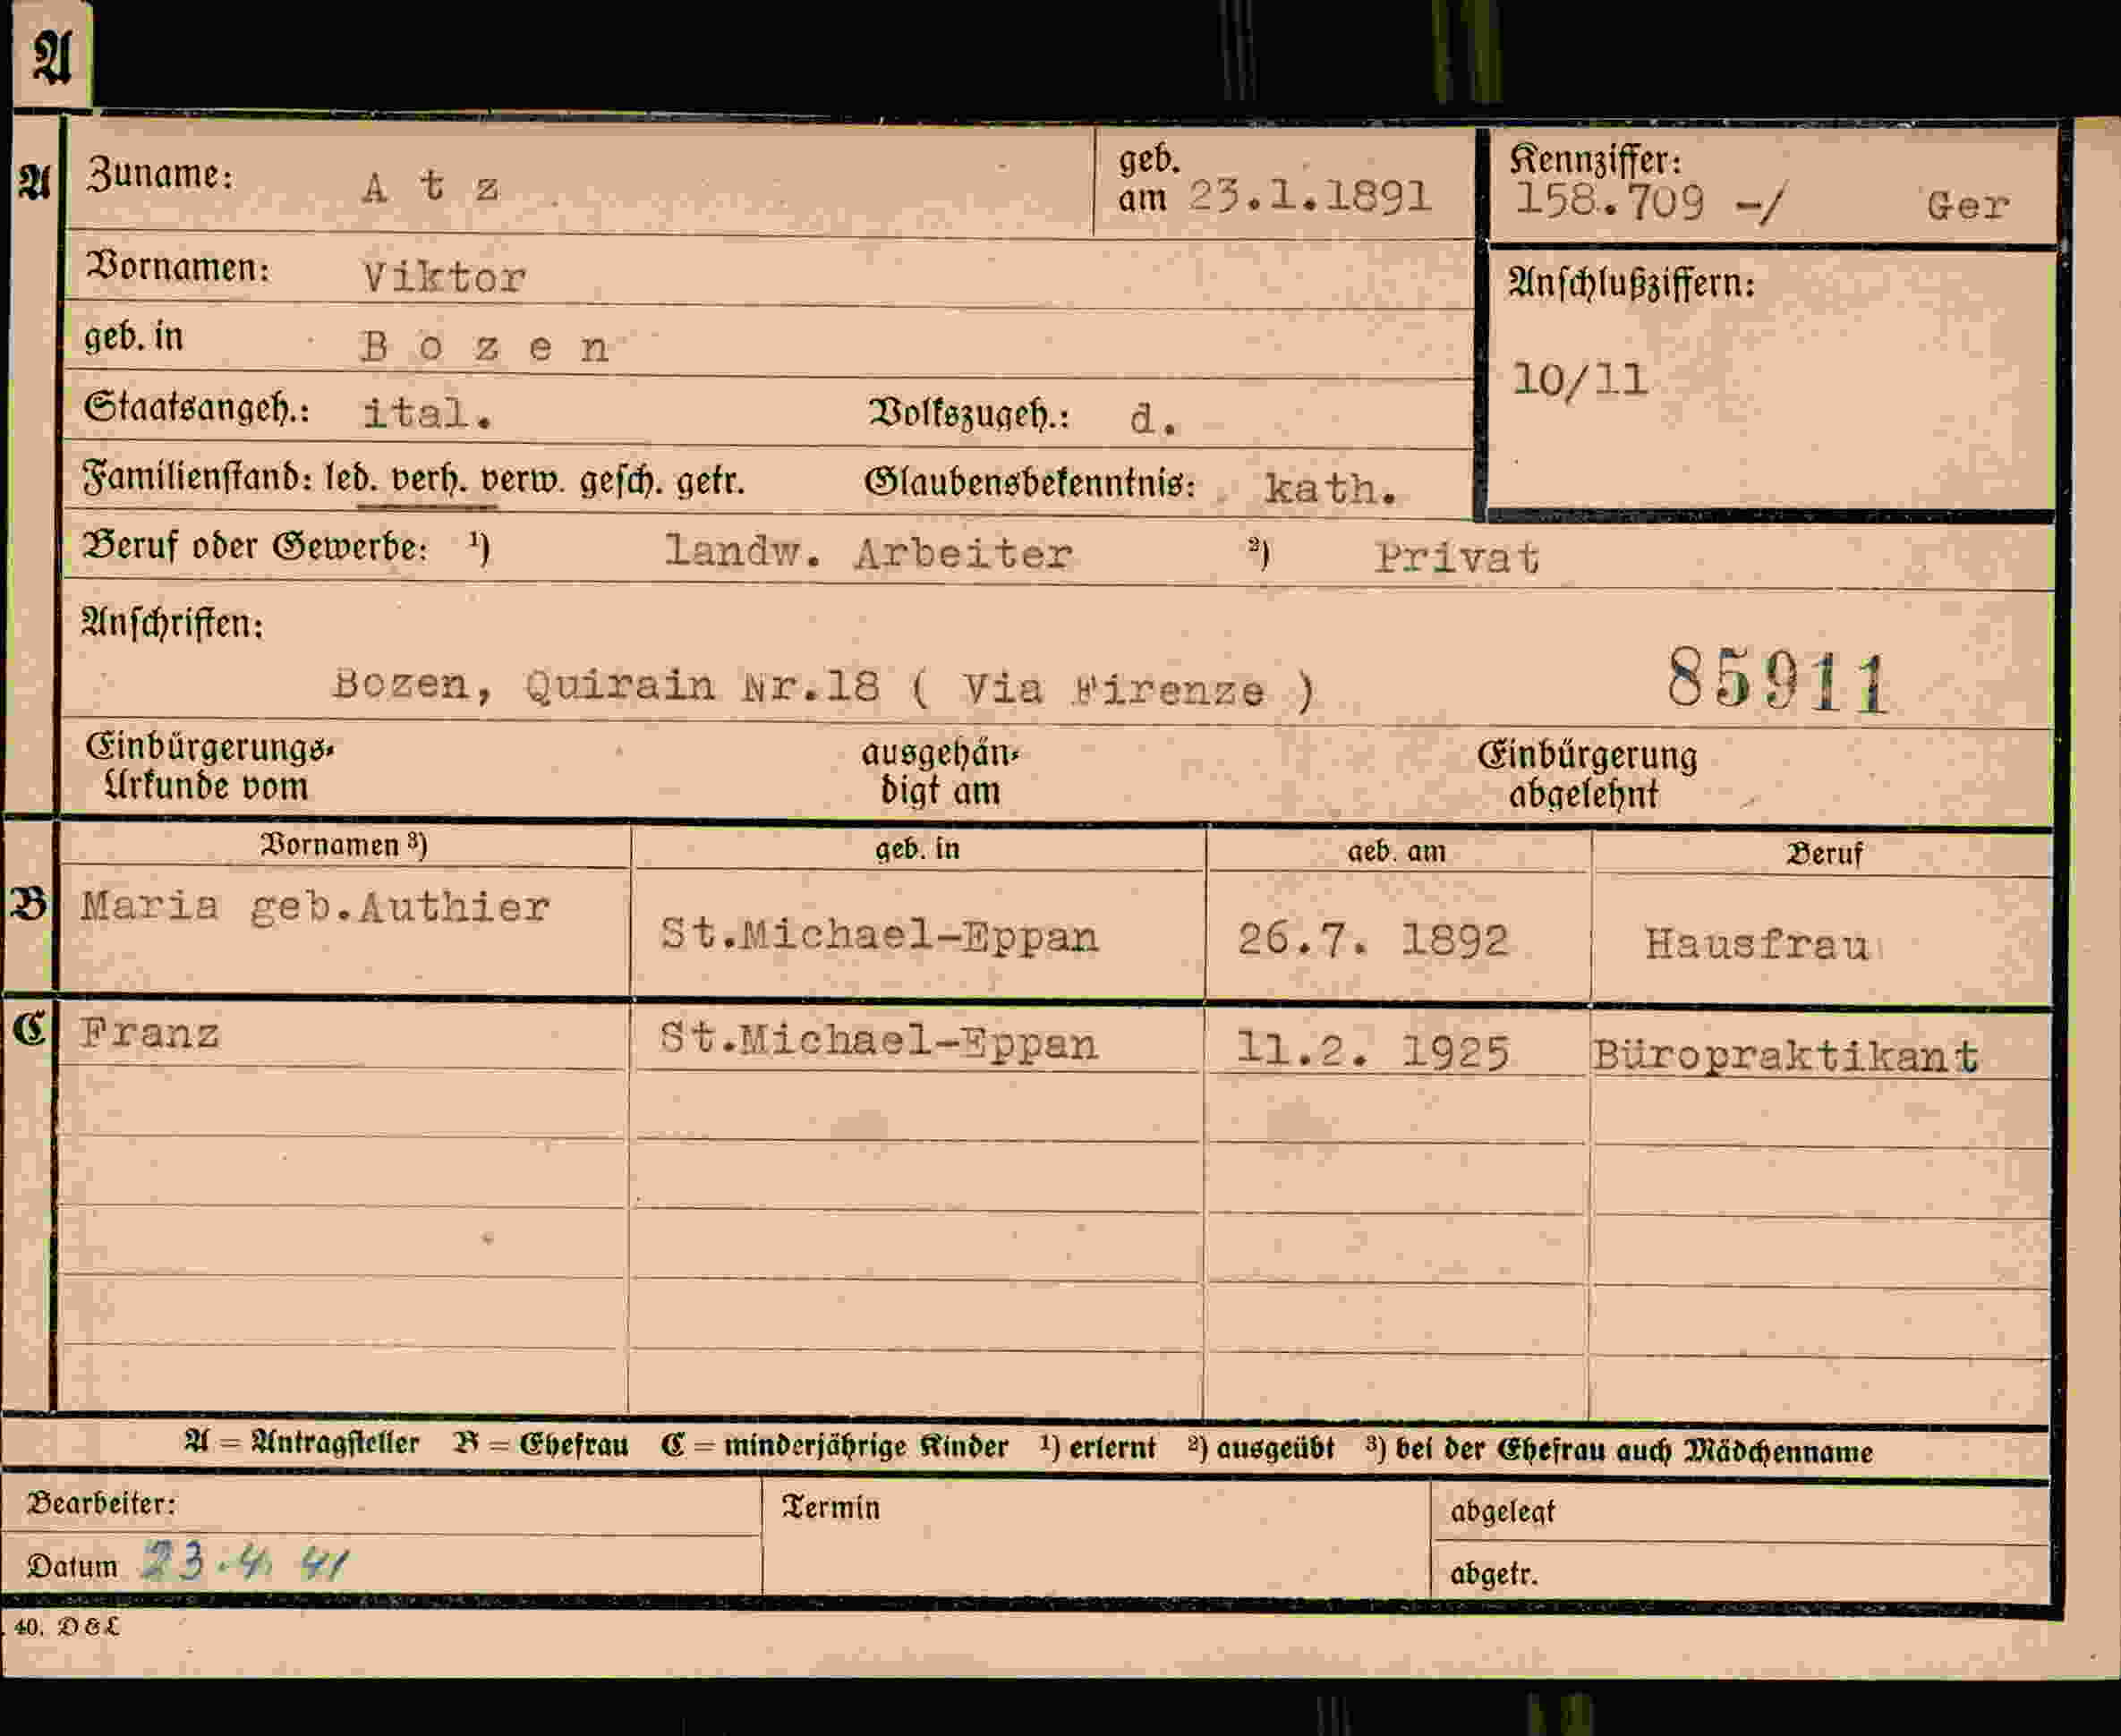 A
A Zuname: A t z geb. am 23.1.1891 Kennziffer: 158.709 -/ Ger
Vornamen: Viktor
Anschlußziffern:
geb. in B o z e n
10/11
Staatsangeh.: ital. Volkszugeh.: d.
Familienstand: led. verh. verw. gesch. getr. Glaubensbekenntnis: kath.
Beruf oder Gewerbe: ¹) landw. Arbeiter ²) Privat
Anschriften:
Bozen, Quirain Nr.18 ( Via Firenze ) 85911
Einbürgerungs- ausgehän- Einbürgerung
Urkunde vom digt am abgelehnt
Vornamen ³) geb. in geb. am Beruf
B Maria geb.Authier St.Michael-Eppan 26.7. 1892 Hausfrau
C Franz St.Michael-Eppan 11.2. 1925 Büropraktikant
A = Antragsteller B = Ehefrau C = minderjährige Kinder ¹) erlernt ²) ausgeübt ³) bei der Ehefrau auch Mädchenname
Bearbeiter: Termin abgelegt
Datum 23.4. 41 abgetr.
40. D & L